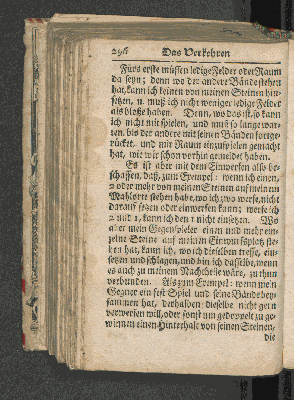 296 Das Verkehren
Fürs erste müssen ledige Felder oder Raum
da seyn; denn wo der andere Bände stehen
hat, kann ich keinen von meinen Steinen hin-
setzen, u. muß ich nicht weniger ledige Felder
als bloße haben. Denn, wo das ist, so kann
ich nicht mit spielen, und muß so lange war-
ten, bis der andere mit seinen Bänden fortge-
rücket, und mir Raum einzuspielen gemacht
hat, wie wir schon vorhin gemeldet haben.
Es ist aber mit dem Einwerfen also be-
schaffen, daß, zum Exempel: wenn ich einen,
2 oder mehr von meinen Steinen auf meinem
Wahlorte stehen habe, wo ich zwo werfe, nicht
darauf setzen oder einwerfen kann; werfe ich
2 und 1, kann ich den 1 nicht einsetzen. Wo
aber mein Gegenspieler einen und mehr ein-
zelne Steine auf meinen Einwurfsplatz ste-
cken hat, kann ich, wo ich dieselben treffe, ein-
setzen und schlagen, und bin ich dasselbe, wenn
es auch zu meinem Nachtheile wäre, zu thun
verbunden. Als zum Exempel: wenn mein
Gegner ein fest Spiel und seine Bände bey-
sammen hat, derhalben dieselbe nicht gern
verwerfen will, oder sonst um gedoppelt zu ge-
winnen einen Hinterhalt von seinen Steinen,
die